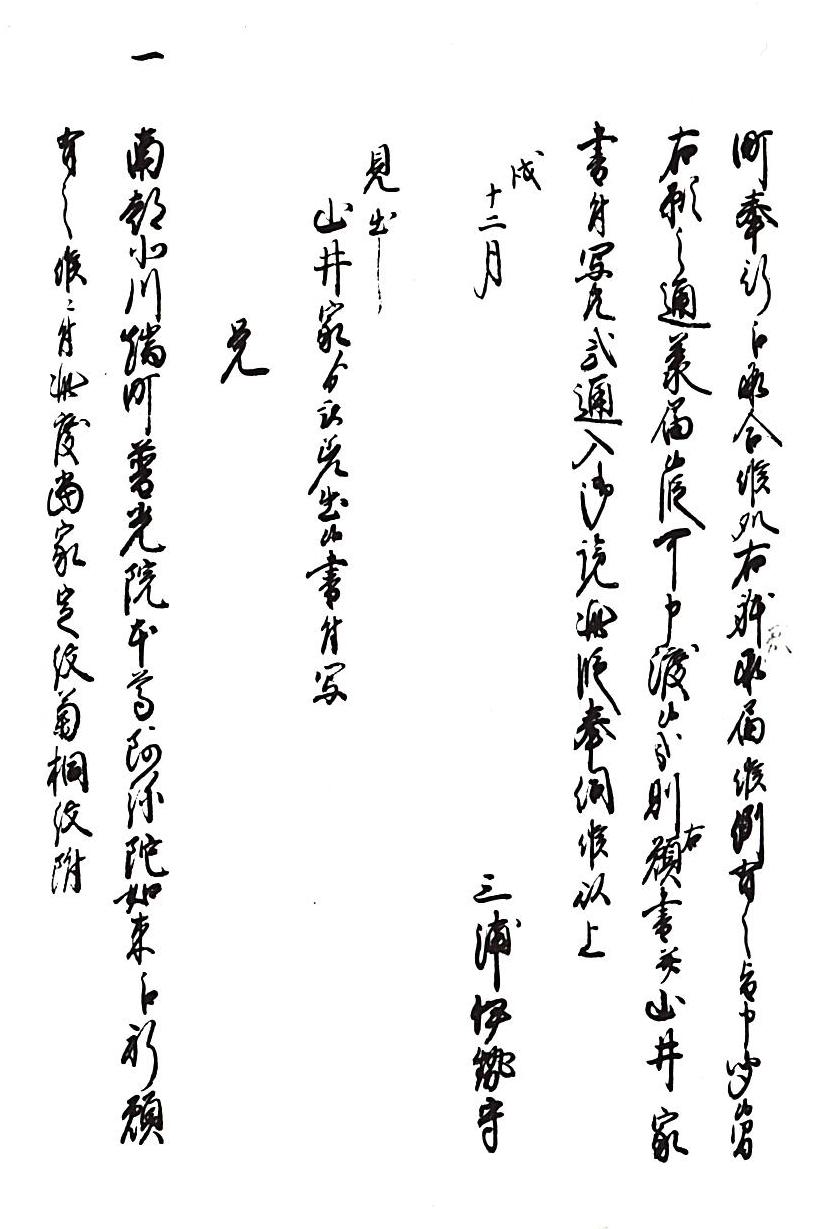 町奉行江承合候処右躰承届候例有之旨申聞候間
右願之通承届候段可申渡候哉則右願書并山井家
書付写共弐通入御覧此段奉伺候以上
戌
十二月
三浦伊勢守
見出し
山井家ゟ被差出候書付写
覚
一 南都小川端町普光院本尊阿弥陀如来江祈願
有之候ニ付此度当家定紋菊桐紋附